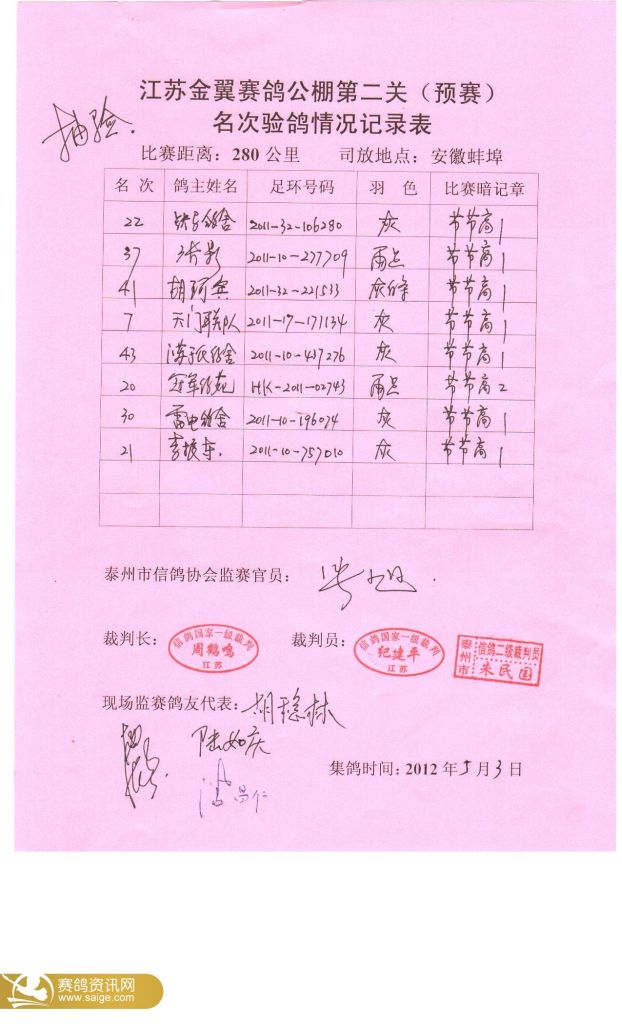 江苏金翼赛鸽公棚第二关（预赛）
抽验.
名次验鸽情况记录表
比赛距离：280 公里 司放地点：安徽蚌埠
名 次 鸽主姓名 足环号码 羽 色 比赛暗记章
22 鸽舍 2011-32-106280 灰 节节高1
37 2011-10-277709 雨点 节节高1
41 胡珂宾 2011-32-221533 节节高1
7 天门联队 2011-17-171134 灰 节节高1
43 鸽舍 2011-10-417276 灰 节节高1
20 冠军鸽苑 HK-2011-02743 雨点 节节高2
30 雷电鸽舍 2011-10-196074 灰 节节高1
21 李振东. 2011-10-757010 灰 节节高1
泰州市信鸽协会监赛官员：
裁判长： 信鸽国家一级裁判 周鹤鸣 江苏 裁判员： 信鸽国家一级裁判 纪建平 江苏 泰州市 信鸽二级裁判员 朱民国
现场监赛鸽友代表： 胡稳林
陆如庆
昌仁
集鸽时间：2012 年 5 月 3 日
赛鸽资讯网
www.saige.com